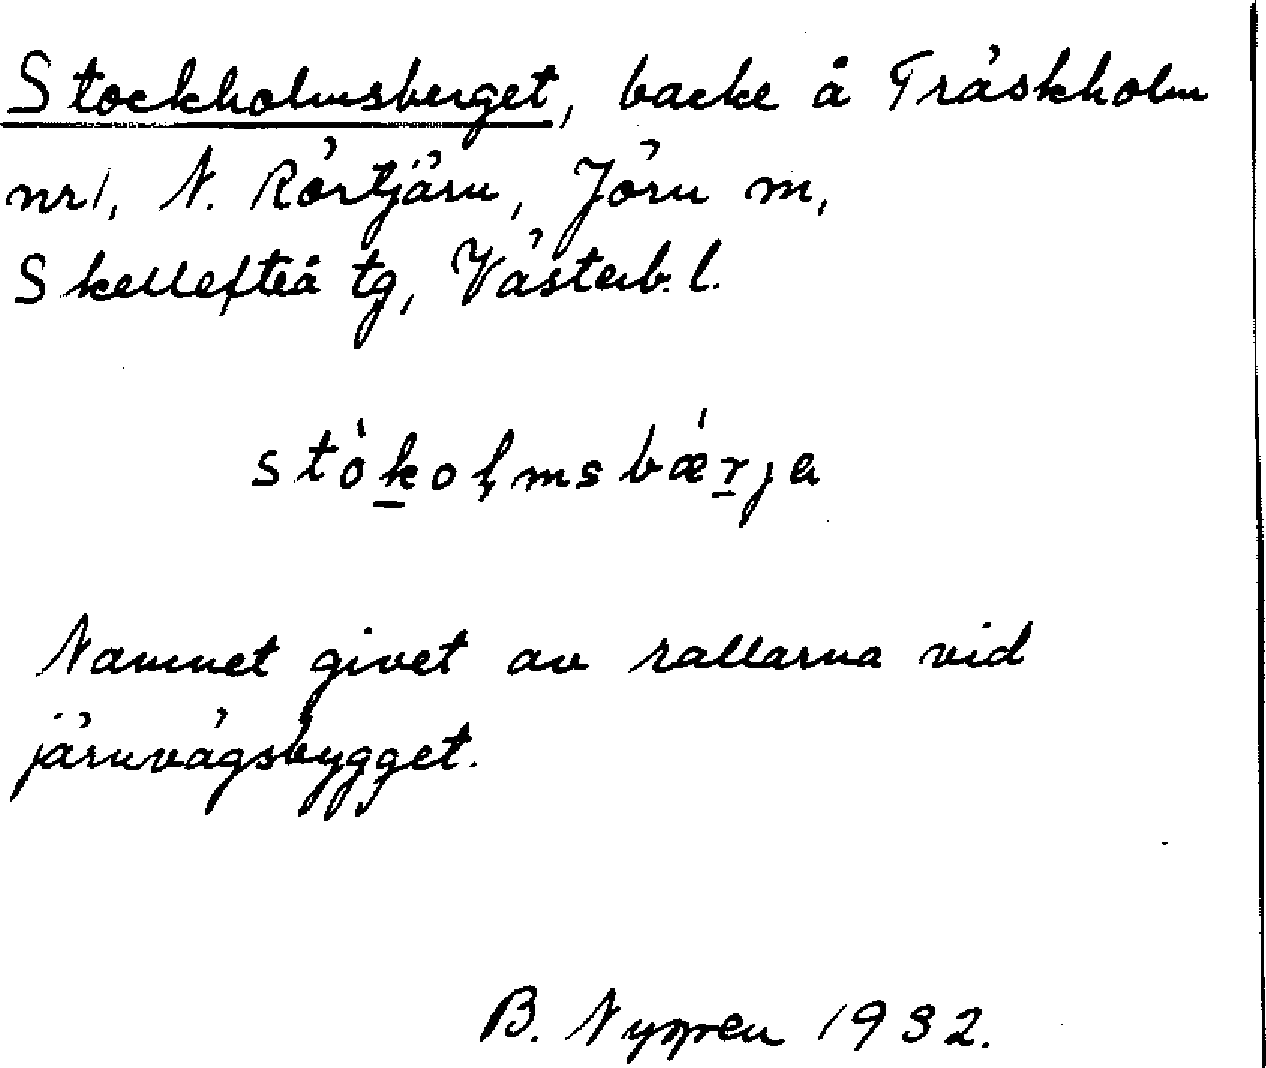 Stockholmsberget, backe å Träskholm
nr 1, N. Rörtjärn, Jörn sn,
Skellefteå tg, Västerb. l.
stòkoḷmsbǽrja
Namnet givet av rallarna vid
järnvägsbygget.
B. Nygren 1932.